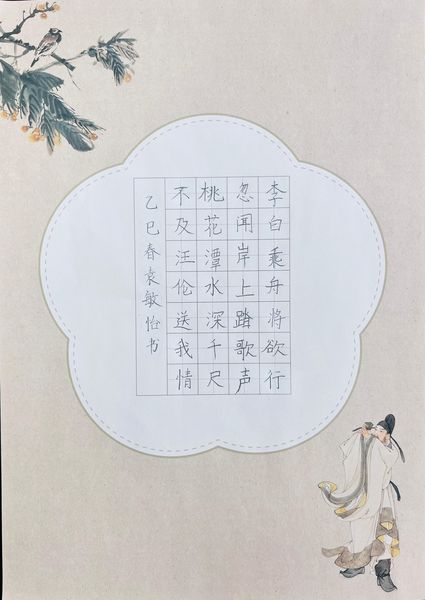 李白乘舟将欲行
忽闻岸上踏歌声
桃花潭水深千尺
不及汪伦送我情
乙巳春袁敏怡书